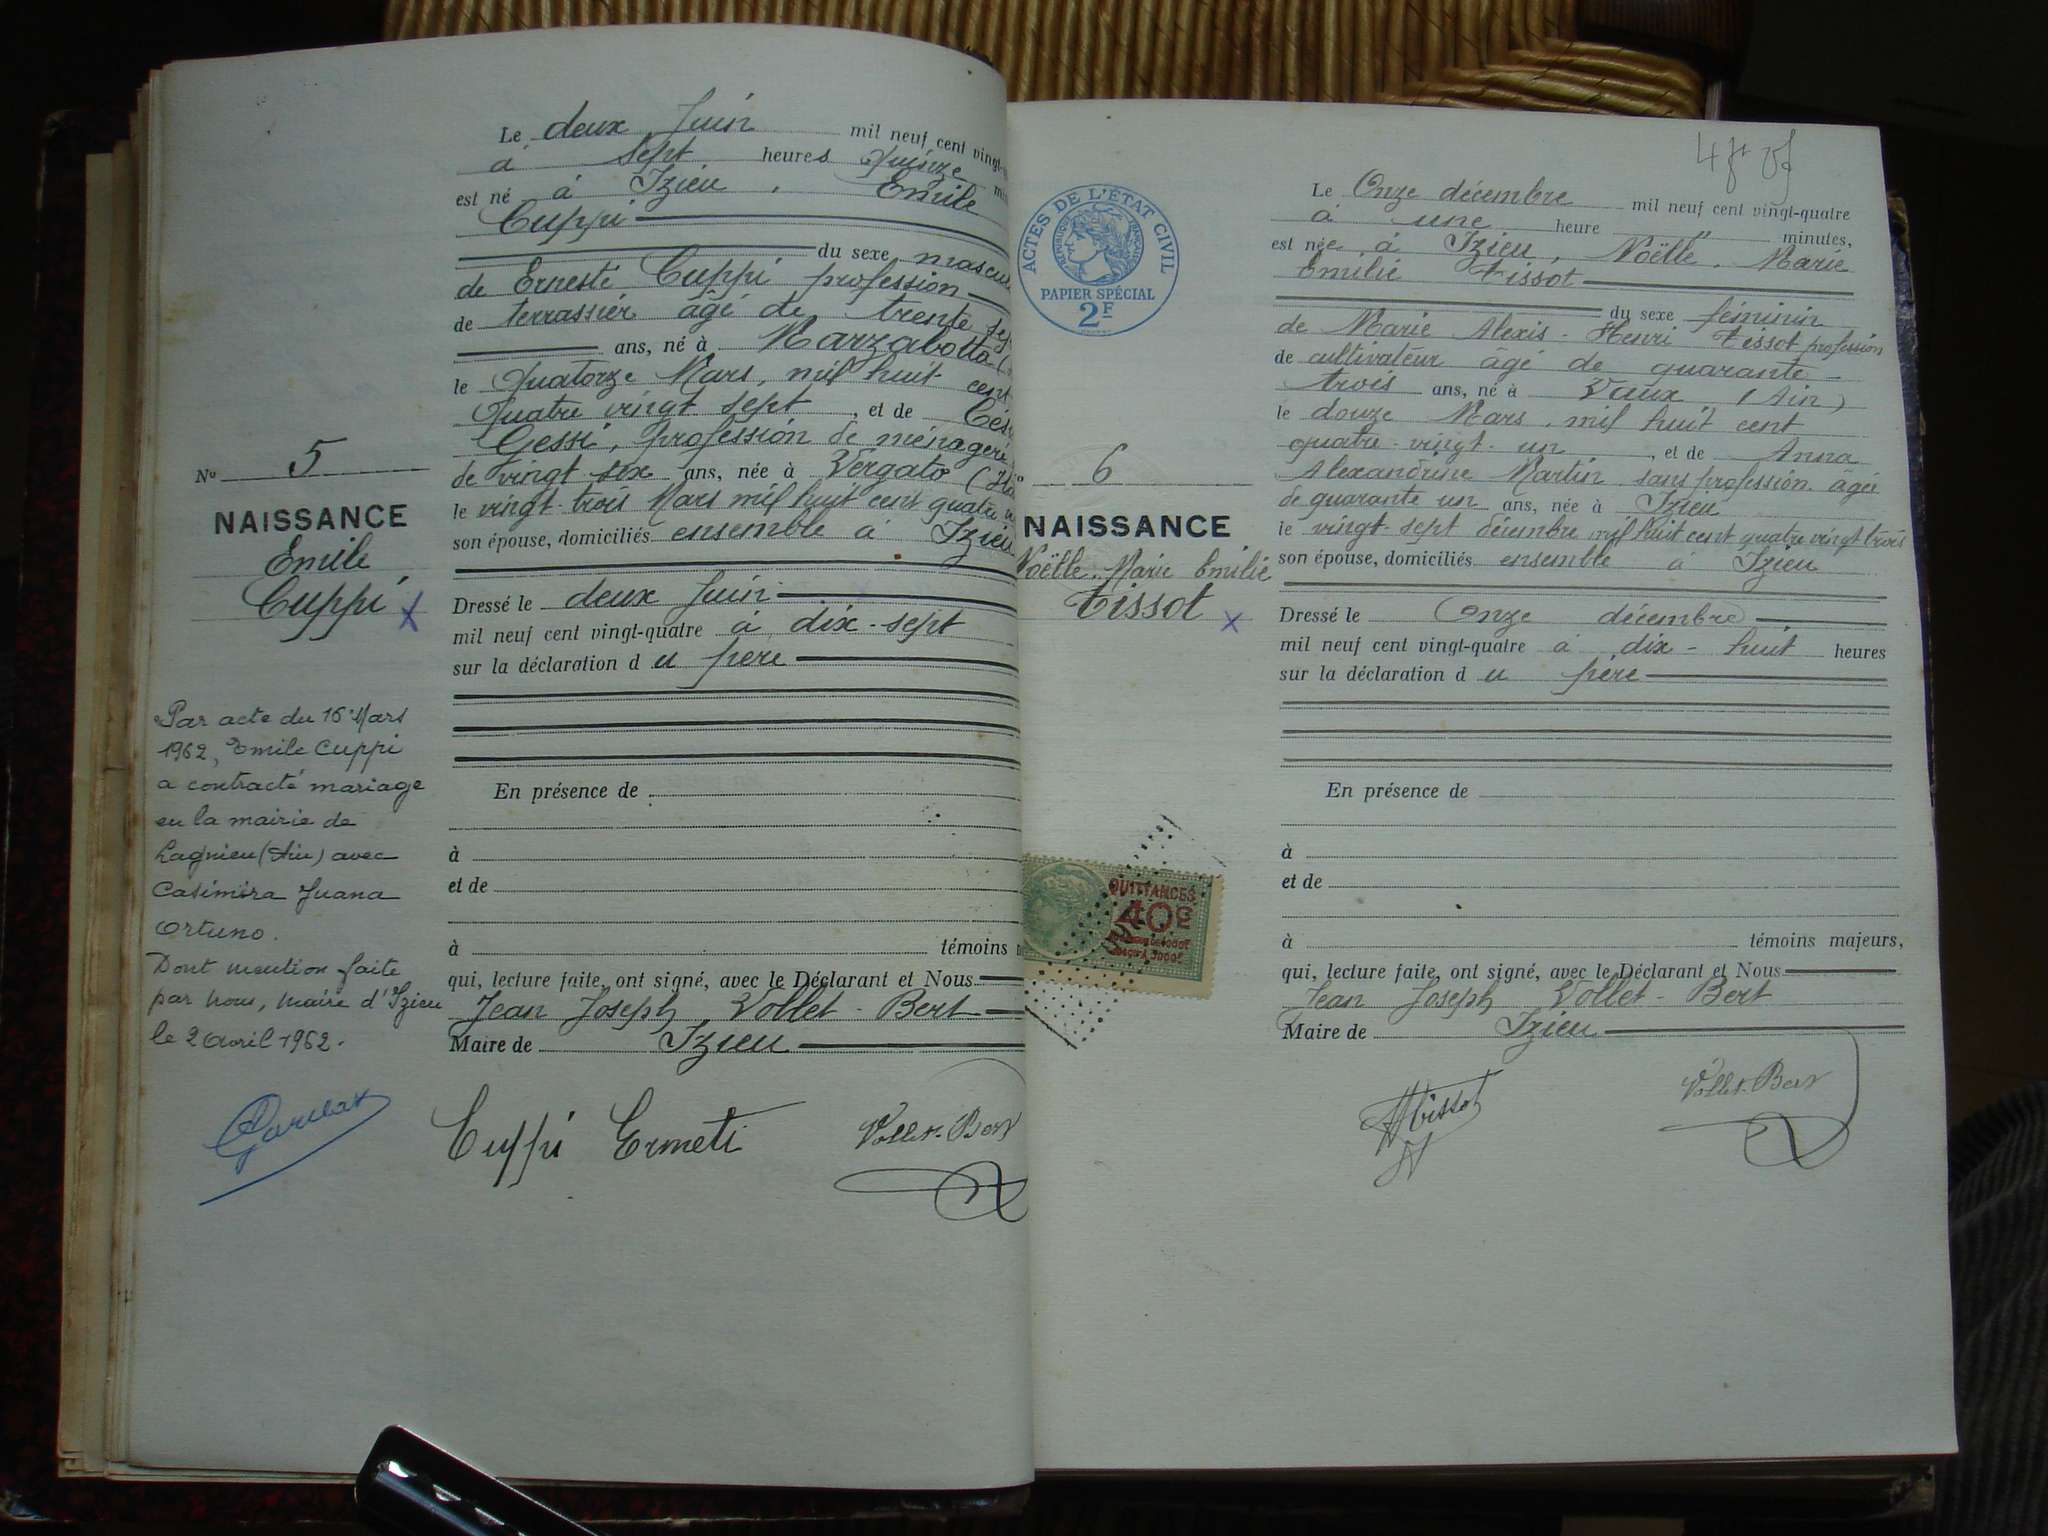 Le deux Juin mil neuf cent vingt-
à Sept heures Quinze
est né à Izieu, Emile
Cuppi
du sexe mascul
de Ernesté Cuppi profession
de terrassier âgé de trente sept
ans, né à Marzabotto
le Quatorze Mars, mil huit cent
Quatre vingt sept, et de Cés
Gessi, profession de ménagère
de vingt six ans, née à Vergato (Ita
le vingt-trois Mars mil huit cent quatre v
son épouse, domiciliés ensemble à Izieu
No 5
NAISSANCE
Emile
Cuppi x
Dressé le deux Juin
mil neuf cent vingt-quatre à dix-sept
sur la déclaration du père
Par acte du 16 Mars
1962, Emile Cuppi
a contracté mariage
en la mairie de
Lagnieu (Ain) avec
Casimira Juana
Ortuno.
Dont mention faite
par nous, maire d'Izieu
le 2 Avril 1962.
En présence de
à
et de
à témoins
qui, lecture faite, ont signé, avec le Déclarant et Nous
Jean Joseph Vollet-Bert
Maire de Izieu
Cuppi Ermeti
Vollet-Bert
ACTES DE L'ÉTAT CIVIL
RÉPUBLIQUE FRANÇAISE
PAPIER SPÉCIAL
2F
Le Onze décembre mil neuf cent vingt-quatre
à une heure " minutes,
est née à Izieu, Noëlle, Marie
Emilie Tissot
du sexe féminin
de Marie Alexis-Henri Tissot profession
de cultivateur âgé de quarante-
trois ans, né à Vaux (Ain)
le douze Mars, mil huit cent
quatre-vingt-un, et de Anna
Alexandrine Martin sans profession âgée
de quarante un ans, née à Izieu
le vingt-sept décembre mil huit cent quatre vingt trois
son épouse, domiciliés ensemble à Izieu
6
NAISSANCE
Noëlle, Marie Emilie
Tissot x
Dressé le Onze décembre
mil neuf cent vingt-quatre à dix-huit heures
sur la déclaration du père
En présence de
à
et de
à témoins majeurs,
qui, lecture faite, ont signé, avec le Déclarant et Nous
Jean Joseph Vollet-Bert
Maire de Izieu
QUITTANCES
40c
HTissot
Vollet-Bert